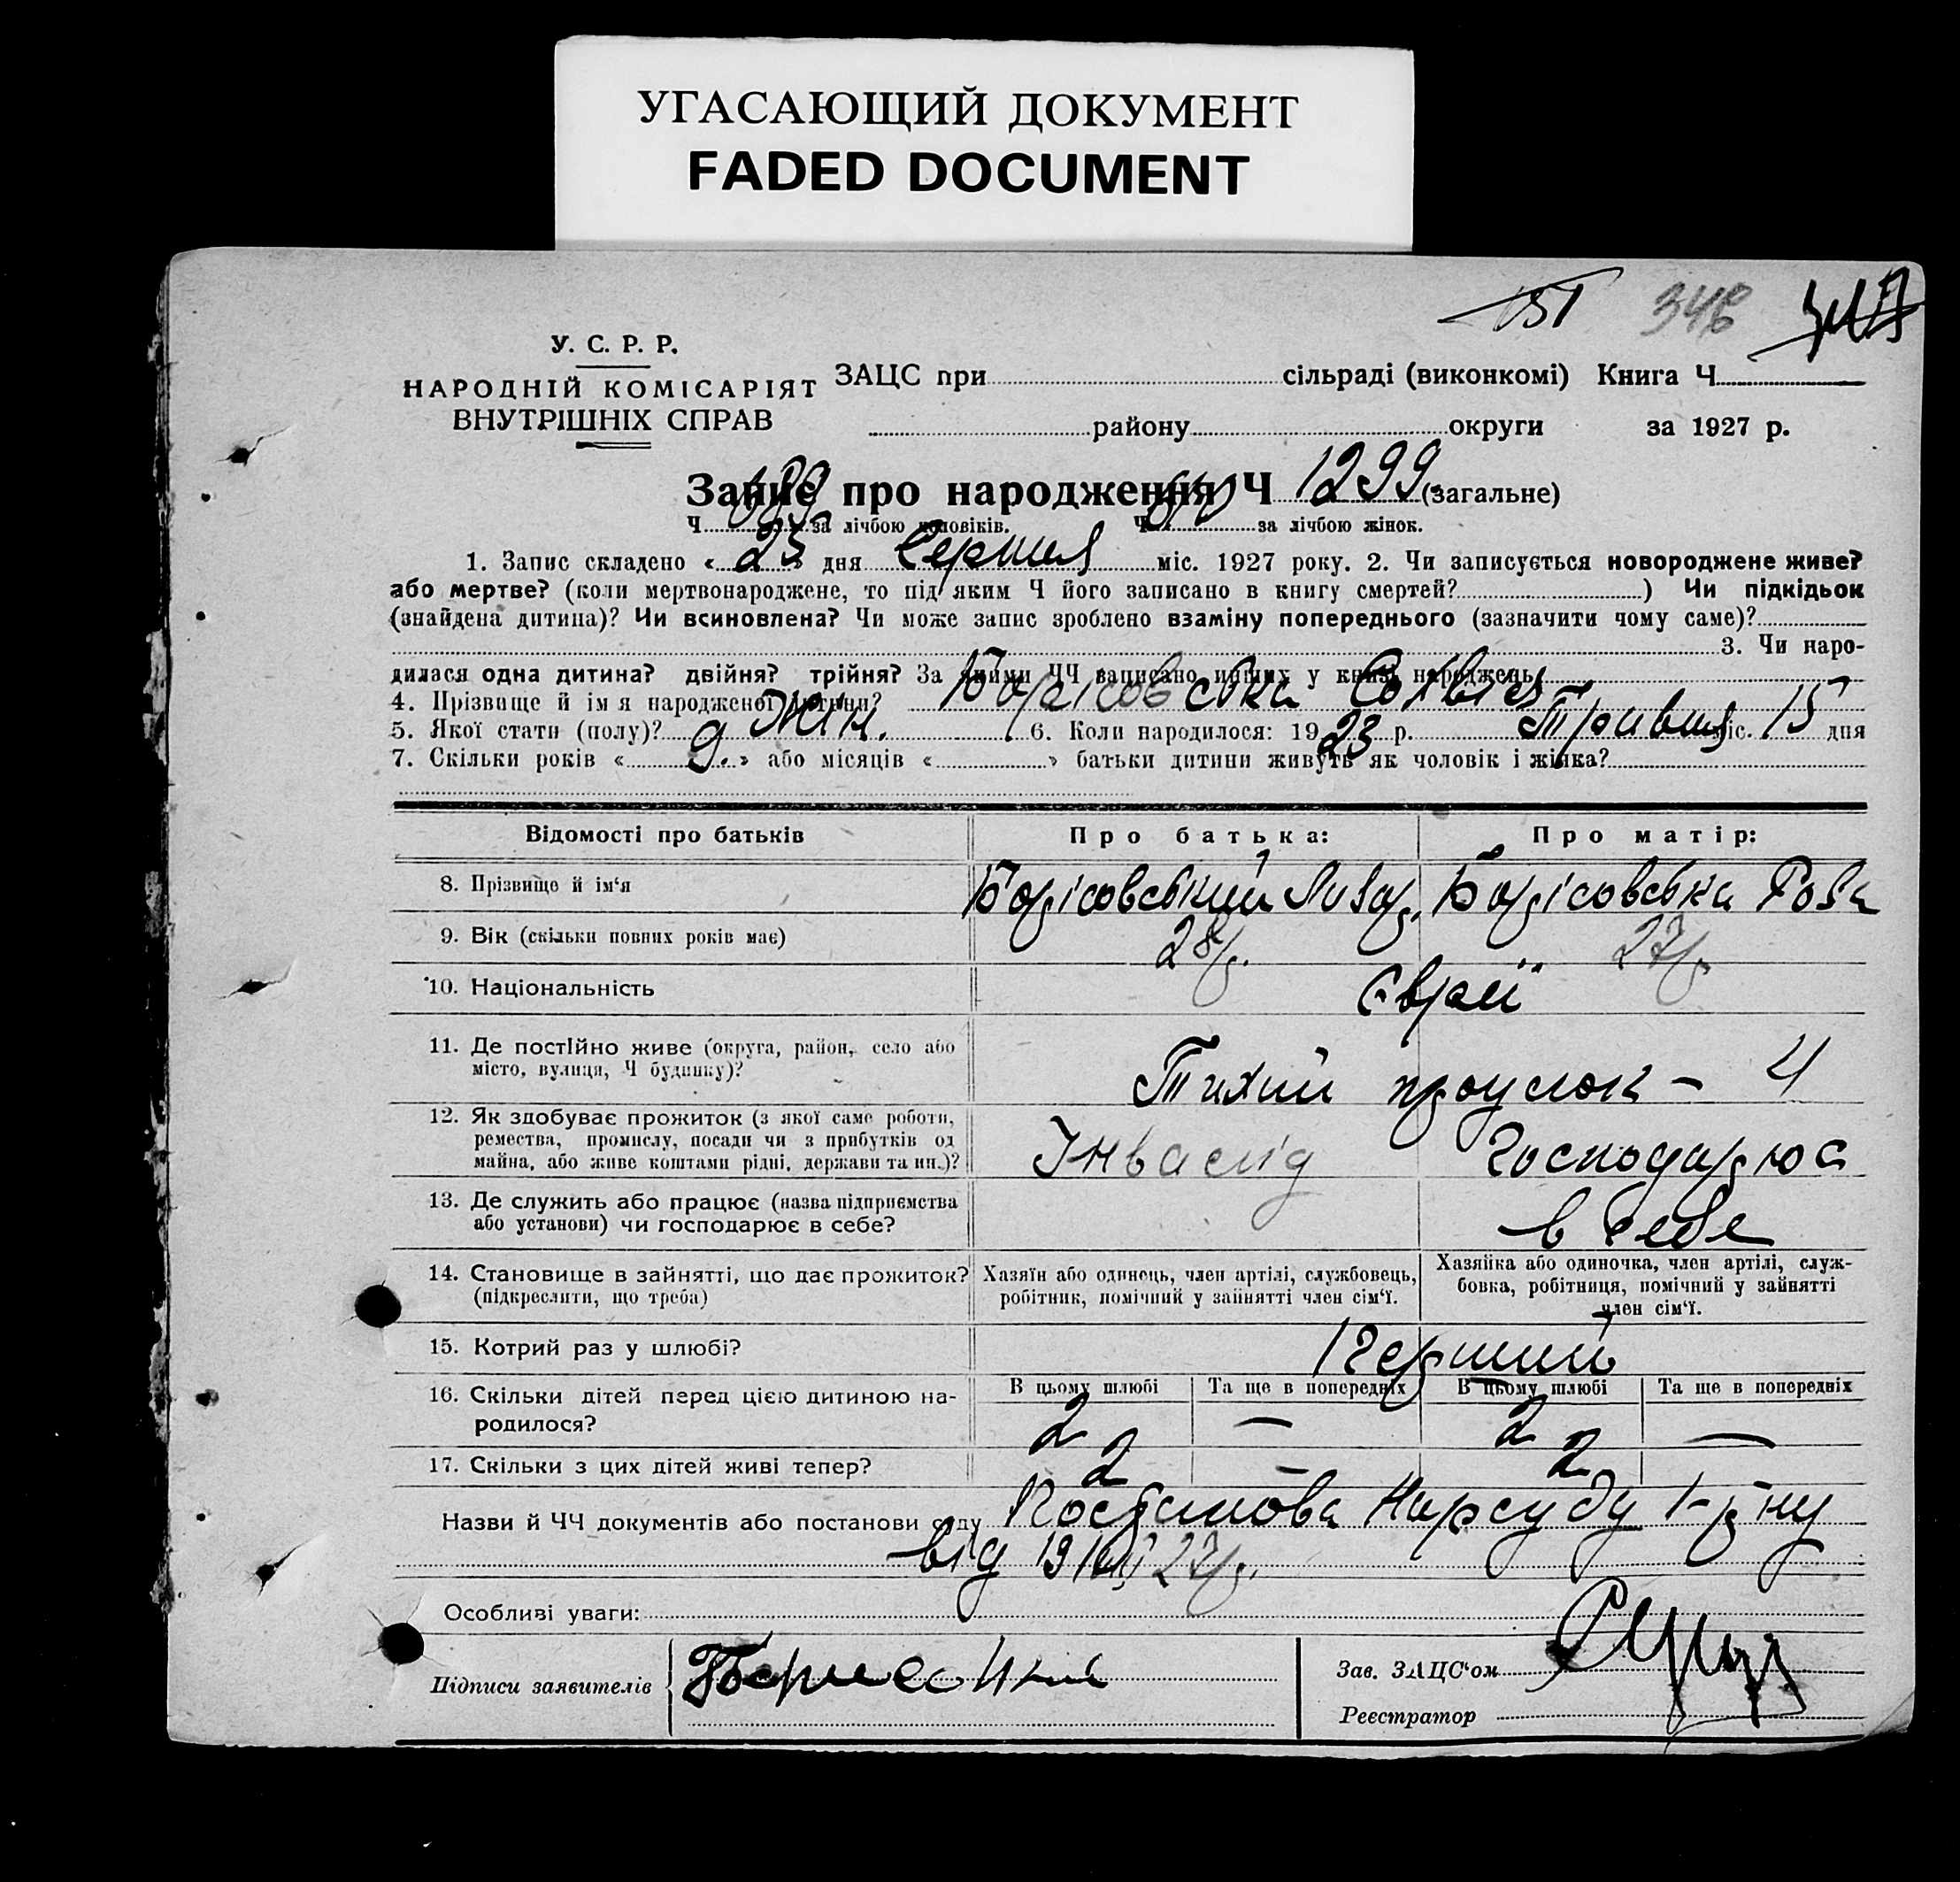 УГАСАЮЩИЙ ДОКУМЕНТ
FADED DOCUMENT
151 348
У. С. Р. Р.
НАРОДНІЙ КОМІСАРІЯТ
ВНУТРІШНІХ СПРАВ
ЗАЦС при сільраді (виконкомі) Книга Ч.
району округи за 1927 р.
Запис про народження Ч 1299 (загальне)
Ч 689 за лічбою чоловіків. Ч за лічбою жінок.
1. Запис складено « 23 » дня Серпня міс. 1927 року. 2. Чи записується новороджене живе?
або мертве? (коли мертвонароджене, то під яким Ч його записано в книгу смертей? ) Чи підкідьок
(знайдена дитина)? Чи всиновлена? Чи може запис зроблено взаміну попереднього (зазначити чому саме)?
3. Чи наро-
дилася одна дитина? двійня? трійня? За якими ЧЧ записано інших у книзі народжень
4. Прізвище й ім'я народженої дитини? Борісовська
5. Якої стати (полу)? Жін. 6. Коли народилося: 1923 р. Травня міс. 15 дня
7. Скільки років « 9. » або місяців « » батьки дитини живуть як чоловік і жінка?
Відомості про батьків Про батька: Про матір:
8. Прізвище й ім'я Борісовський Лазар. Борісовська Роза
9. Вік (скільки повних років має) 28р. 27р.
10. Національність Євреї
11. Де постійно живе (округа, район, село або
місто, вулиця, Ч будинку)? Тихий проулок – 4
12. Як здобуває прожиток (з якої саме роботи,
ремества, промислу, посади чи з прибутків од
майна, або живе коштами рідні, держави та ин.)? Інвалід Господарює
13. Де служить або працює (назва підприємства
або установи) чи господарює в себе? в себе
14. Становище в зайнятті, що дає прожиток?
(підкреслити, що треба)
Хазяїн або одинець, член артілі, службовець,
робітник, помічний у зайнятті член сім'ї.
Хазяйка або одиночка, член артілі, служ-
бовка, робітниця, помічний у зайнятті
член сім'ї.
15. Котрий раз у шлюбі? Перший
16. Скільки дітей перед цією дитиною на-
родилося?
В цьому шлюбі Та ще в попередніх В цьому шлюбі Та ще в попередніх
2 — 2 —
17. Скільки з цих дітей живі тепер? 2 — 2
Назви й ЧЧ документів або постанови суду Постанова Нарсуду 1-р-ну
від 19/VIII 27р.
Особливі уваги:
Підписи заявителів
Зав. ЗАЦС'ом
Реєстратор